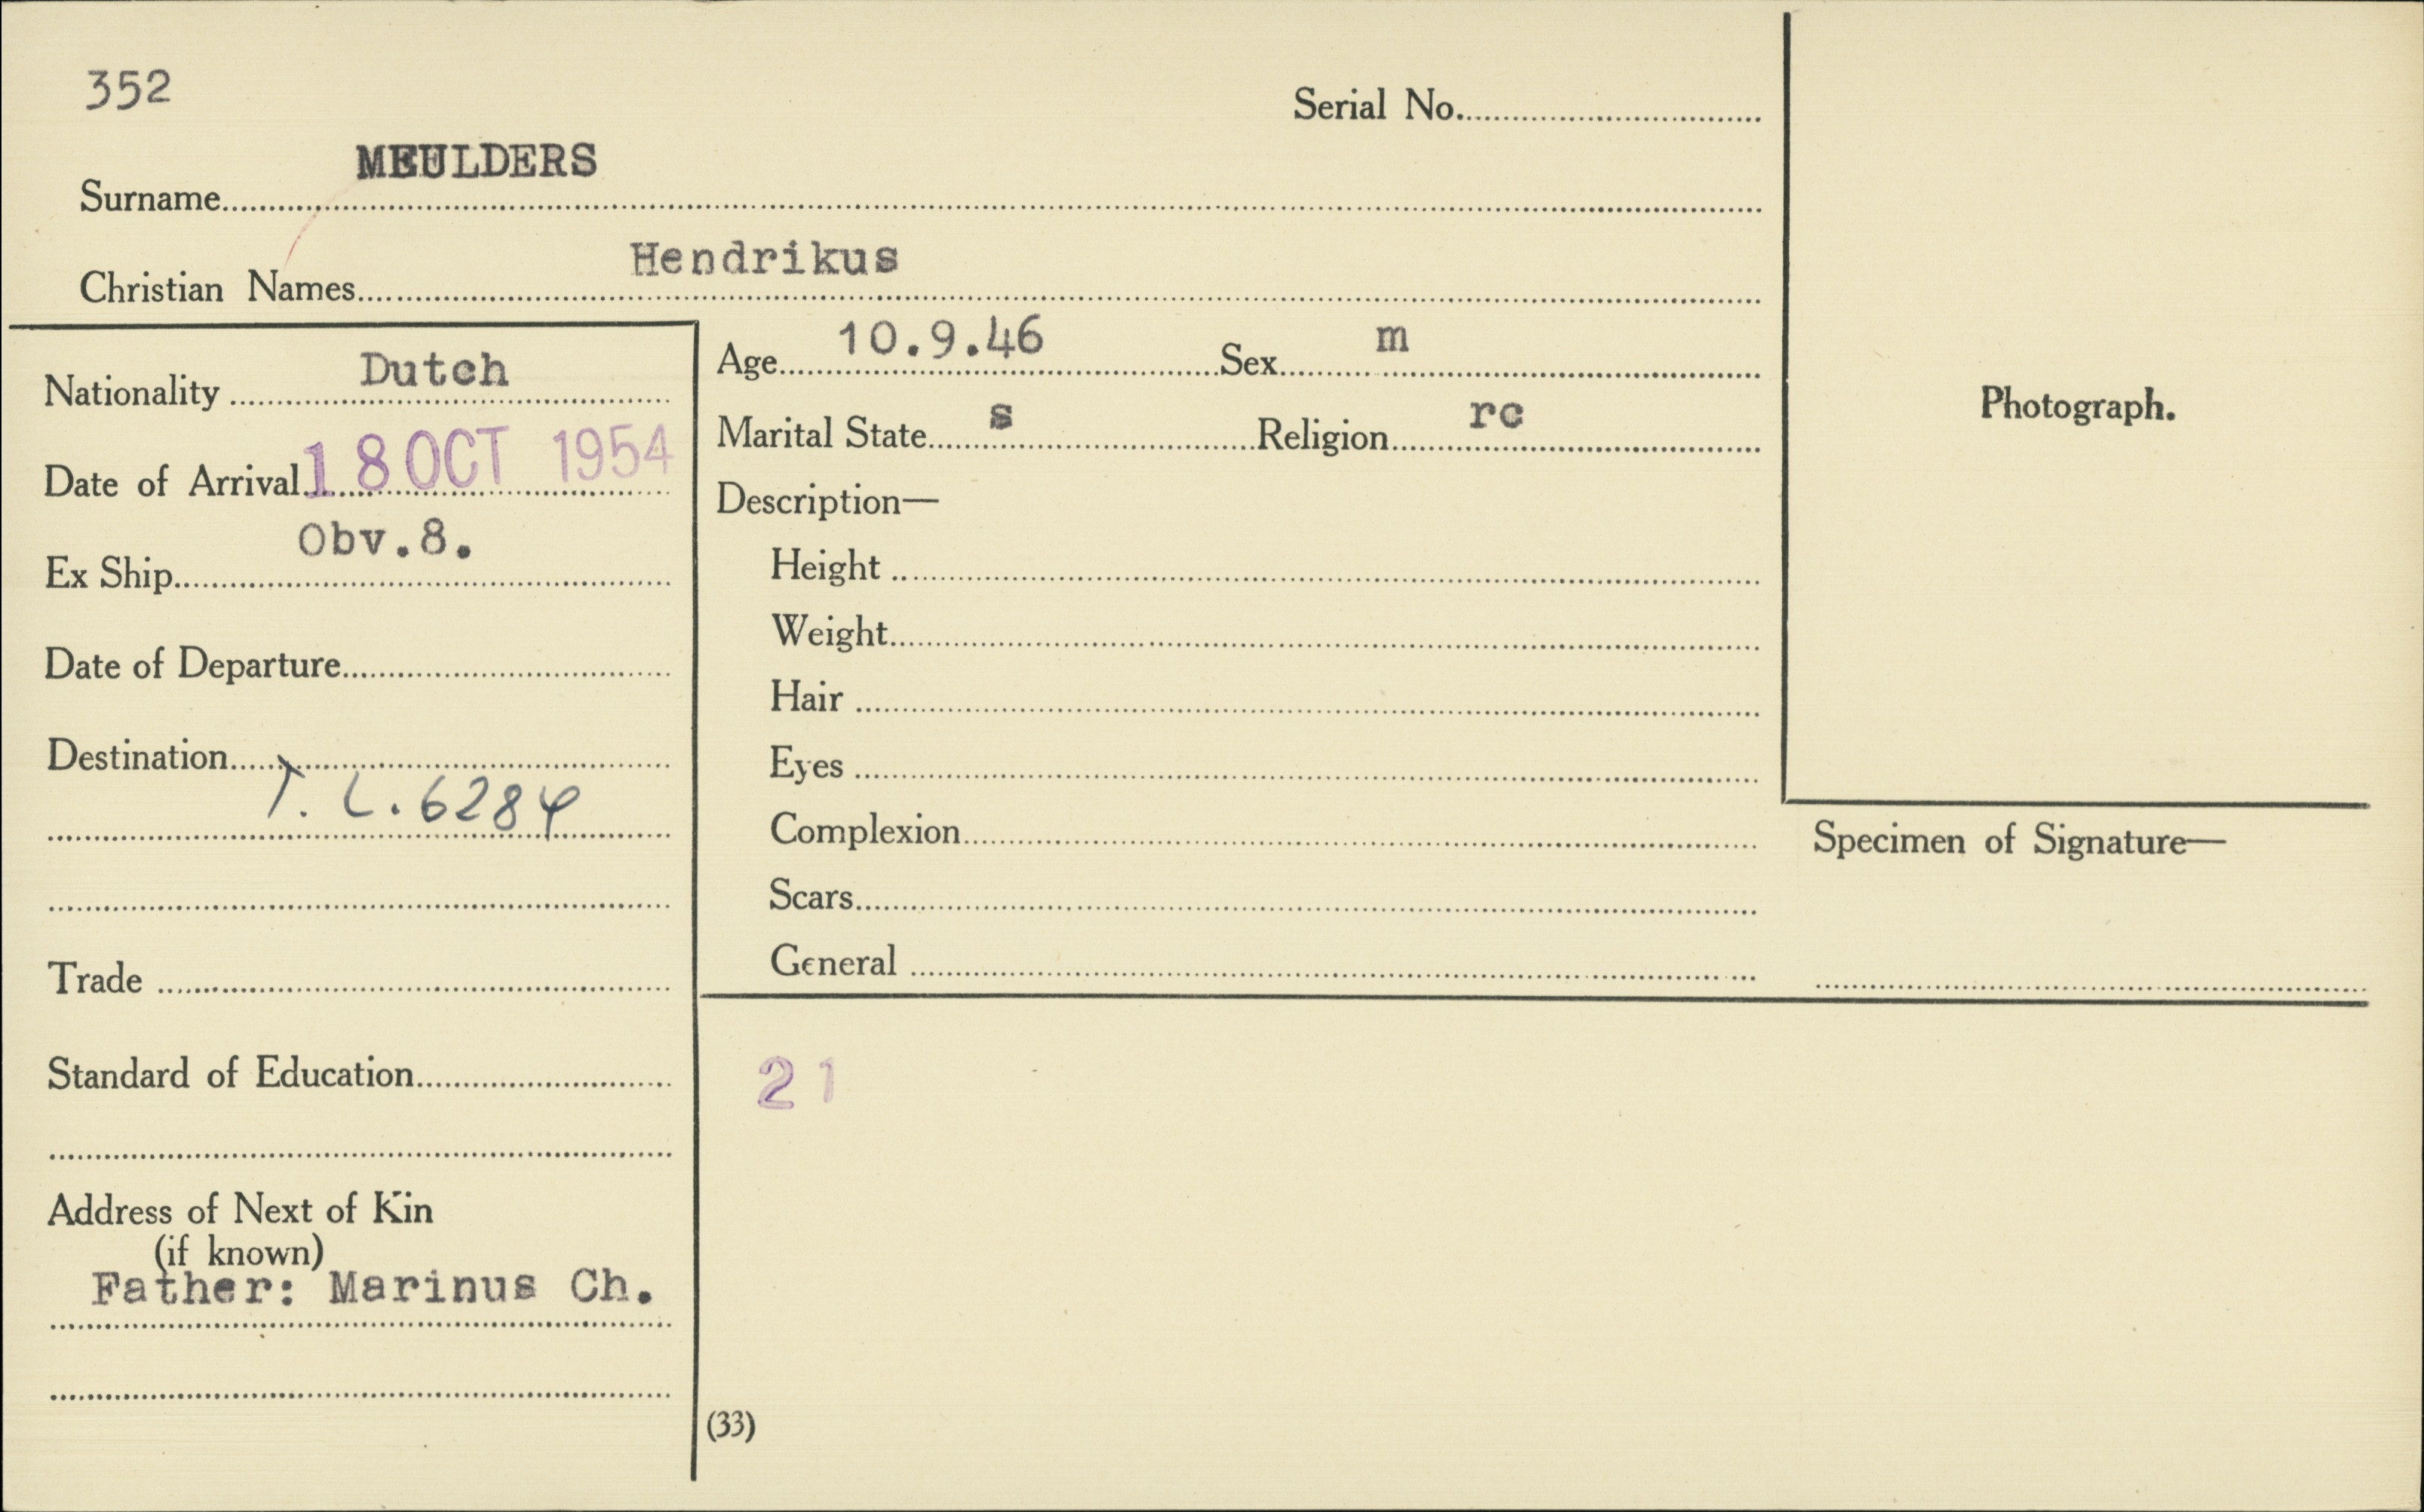 352
Serial No.
MEULDERS
Surname
Hendrikus
Christian Names
Dutch
Nationality
18 OCT 1954
Date of Arrival
Obv.8.
Ex Ship
Date of Departure
Destination
T. L. 6284
Trade
Standard of Education
Address of Next of Kin
(if known)
Father: Marinus Ch.
Age 10.9.46 Sex m
Marital State s Religion rc
Description—
Height
Weight
Hair
Eyes
Complexion
Scars
General
21
(33)
Photograph.
Specimen of Signature—